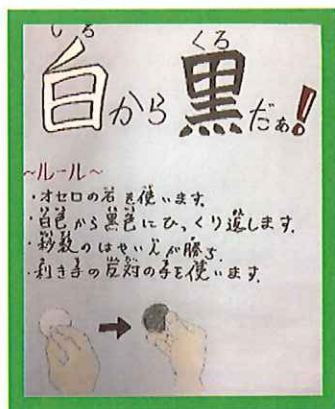 いろ くろ
白から黒だぁ!
~ルール~
・オセロの石を使います。
・白色から黒色にひっくり返します。
・秒数のはやい人が勝ち。
・利き手の反対の手を使います。